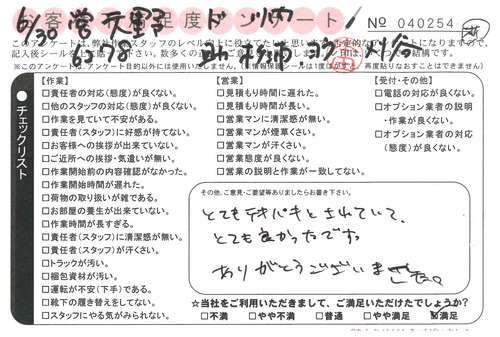 お客様満足度アンケート
No 040254
6/30 営 天野 ドライバー
このアンケートは、弊社スタッフのレベル向上に役立てたいと思います。
※このアンケートは、アンケート目的以外には使用いたしません。
刈谷
チェックリスト
【作業】
□責任者の対応(態度)が良くない。
□他のスタッフの対応(態度)が良くない。
□作業を見ていて不安がある。
□責任者(スタッフ)に好感が持てない。
□お客様への挨拶が出来ていない。
□ご近所への挨拶・気遣いが無い。
□作業開始前の内容確認がなかった。
□作業開始時間が遅れた。
□荷物の取り扱いが雑である。
□お部屋の養生が出来ていない。
□作業時間が長すぎる。
□責任者(スタッフ)に清潔感が無い。
□責任者(スタッフ)が汗くさい。
□トラックが汚い。
□梱包資材が汚い。
□運転が不安(下手)である。
□靴下の履き替えをしてない。
□スタッフにやる気がみられない。
【営業】
□見積もり時間に遅れた。
□見積もり時間が長い。
□営業マンに清潔感が無い。
□営業マンが煙草くさい。
□営業マンが汗くさい。
□営業態度が良くない。
□営業の説明と作業が一致してない。
【受付・その他】
□電話の対応が良くない。
□オプション業者の説明
・作業が良くない。
□オプション業者の対応
(態度)が良くない。
その他、ご意見・ご要望等ありましたらお書き下さい。
とてもテキパキとされていて、
とても良かったです。
ありがとうございました。
☆当社をご利用いただきまして、ご満足いただけたでしょうか?
□不満 □やや不満 □普通 □やや満足 ☑満足